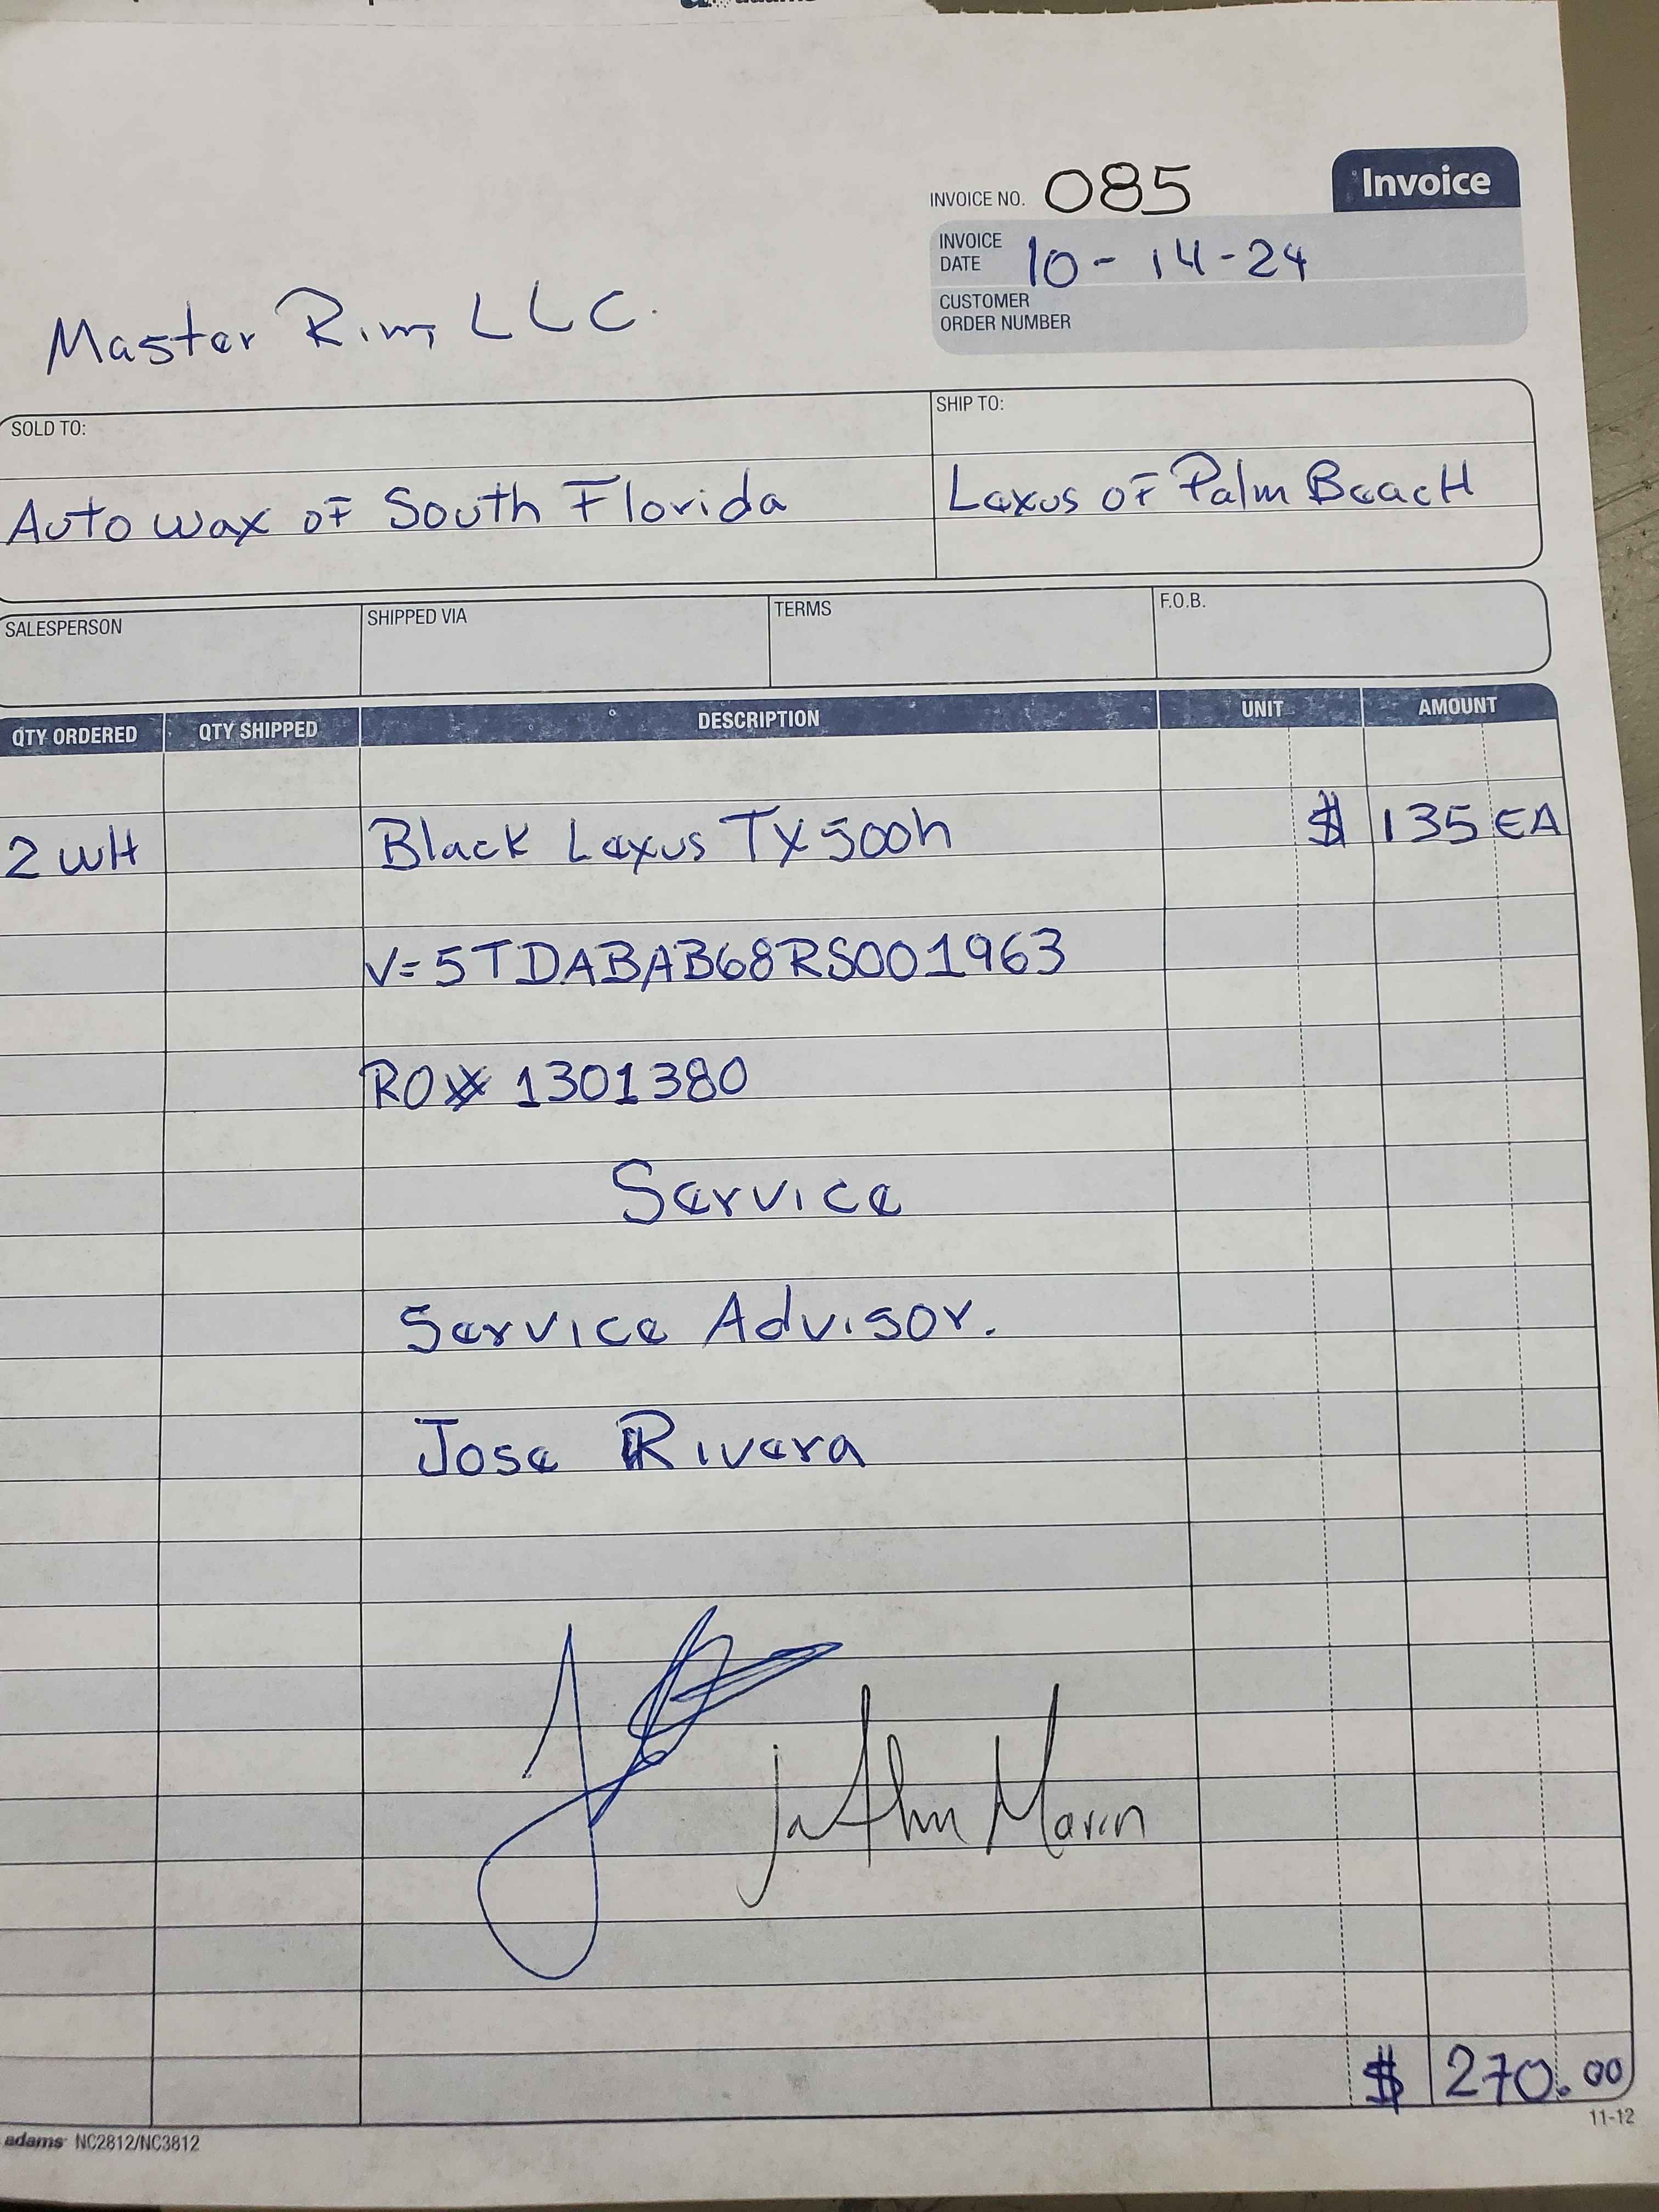 INVOICE NO. 085
Invoice
INVOICE DATE 10-14-24
CUSTOMER ORDER NUMBER
Master Rim, LLC.
SOLD TO:
SHIP TO:
Auto wax of South Florida
Lexus of Palm Beach
SALESPERSON
SHIPPED VIA
TERMS
F.O.B.
QTY ORDERED QTY SHIPPED DESCRIPTION UNIT AMOUNT
2 WH Black Lexus TX500h $ 135 EA
V=5TDABAB68RS001963
RO# 1301380
Service
Service Advisor.
Jose Rivera
Marin
$ 270.00
adams NC2812/NC3812
11-12